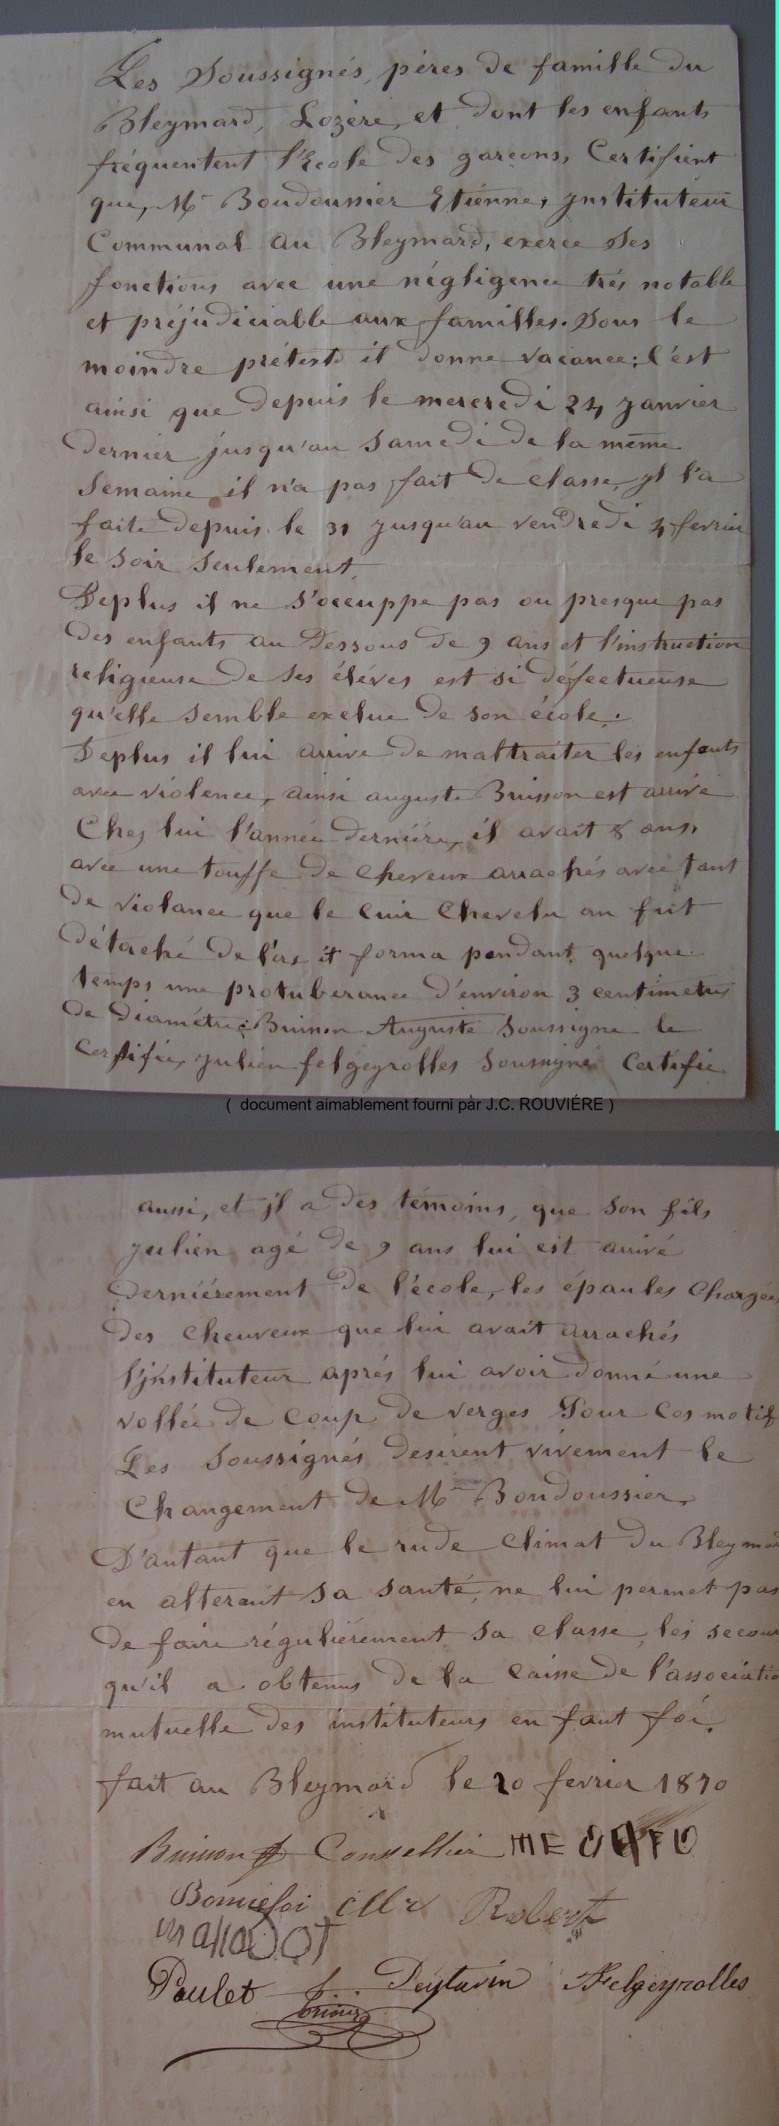 Les Soussignés, péres de famille du
Bleymard, Lozère, et dont les enfants
fréquentent l'Ecole des garcons, Certifient
que, Mr Boudoussier Etiénne, ynstituteur
Communal au Bleymard, exerce Ses
fonctions avec une négligence trés notable
et préjudiciable aux familles. Sous le
moindre prétexte il donne vacance; C'est
ainsi que depuis le mercredi 24 janvier
dernier jusqu'au Samedi de la même
Semaine il n'a pas fait de classe, yl l'a
faite depuis le 31 jusqu'au vendredi 4 fevrier
le soir seulement
Deplus il ne s'occuppe pas ou presque pas
des enfants au Dessous de 9 ans et l'instruction
religieuse de ses éléves est si défectueuse
qu'elle semble exclue de son école.
Deplus il lui arrive de maltraiter les enfants
avec violence, ainsi auguste Buisson est arrivé
Chez lui l'année derniére, il avait 8 ans,
avec une touffe de cheveux arrachés avec tant
de violance que le Cuir Chevelu an fut
détaché de l'os it forma pendant quelque
temps une protuberance d'environ 3 centimetres
de diamétre; Buisson Auguste Soussigne le
Certifie, Julien felgeyrolles Soussigné Certifie
( document aimablement fourni par J.C. ROUVIÉRE )
aussi, et jl a des témoins, que son fils
Julien agé de 9 ans lui est arrivé
derniérement de l'école, les épaules Chargées
des cheuveux que lui avait arrachés
l'jnstituteur aprés lui avoir donné une
vollée de coup de verges Pour Ces motif
Les Soussignés desirent vivement le
Changement de Mr Boudoussier,
D'autant que le rude climat du Bleymard
en alterant sa santé, ne lui permet pas
de faire réguliérement sa classe, les secour
qu'il a obtenus de la caisse de l'associatio
mutuelle des instituteurs en faut foi.
fait au Bleymard le 20 fevrier 1870
Buisson Consellier
Bonnefoi Robert
Poulet Peytavin Felgeyrolles